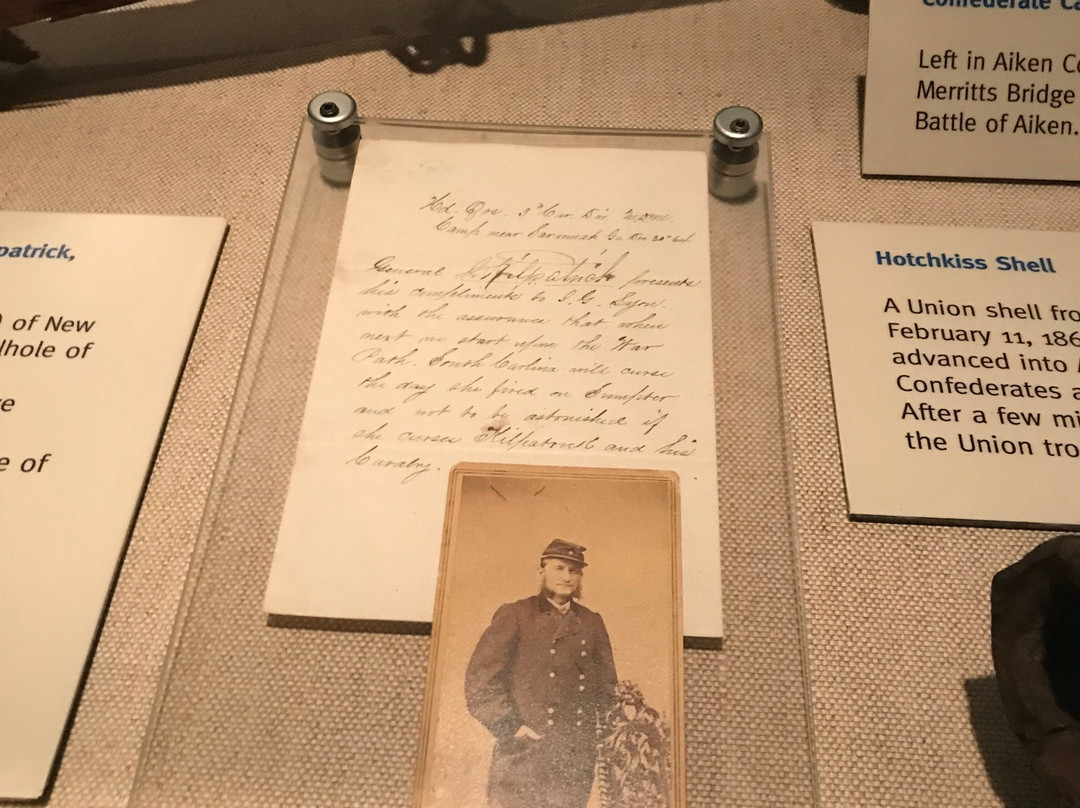 Confederate Ca
Left in Aiken Co
Merritts Bridge
Battle of Aiken.
patrick,
) of New
lhole of
e
e of
Hd. Qrs. 3d Cav. Div. M.D.M.
Camp near Savannah Ga Dec 30th 64
General J. Kilpatrick presents
his compliments to J. G. Lyon.
with the assurance that when
next we start upon the War
Path. South Carlina will curse
the day she fired on Sumpter
and not to be astonished if
she curses Kilpatrick and his
Cavalry.
Hotchkiss Shell
A Union shell fro
February 11, 186
advanced into A
Confederates a
After a few mi
the Union tro